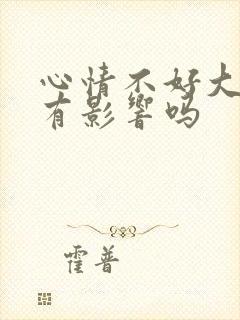 心情不好大
有影响吗
霍普